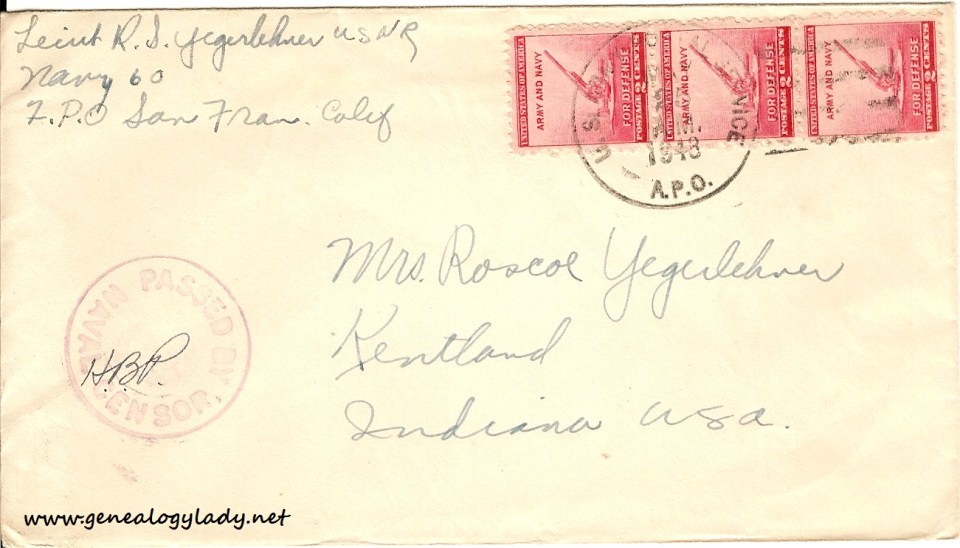 Leiut R. S. Yegerlehner USNR
Navy 60
F.P.O San Fran. Calif
UNITED STATES OF AMERICA
ARMY AND NAVY
FOR DEFENSE
POSTAGE 2 CENTS
UNITED STATES OF AMERICA
ARMY AND NAVY
FOR DEFENSE
POSTAGE 2 CENTS
UNITED STATES OF AMERICA
ARMY AND NAVY
FOR DEFENSE
POSTAGE 2 CENTS
U.S.
VICE
1943
A.P.O.
Mrs. Roscoe Yegerlehner
Kentland
Indiana USA.
PASSED BY
NAVAL CENSOR
HBP.
www.genealogylady.net